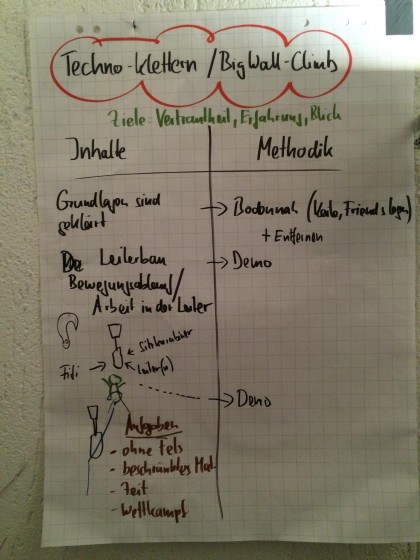 Techno-Klettern / BigWall-Climb
Ziele: Vertrautheit, Erfahrung, Blick
Inhalte
Methodik
Grundlagen sind
geklärt
→ Bodennah (Keile, Friends legen)
+ Entfernen
Leiterbau
→ Demo
Bewegungsablauf/
Arbeit in der Leiter
← Sitzkarabiner
← Leiter(n)
Fifi →
→ Demo
Aufgaben
- ohne Fels
- beschränktes Mat.
- Zeit
- Wettkampf